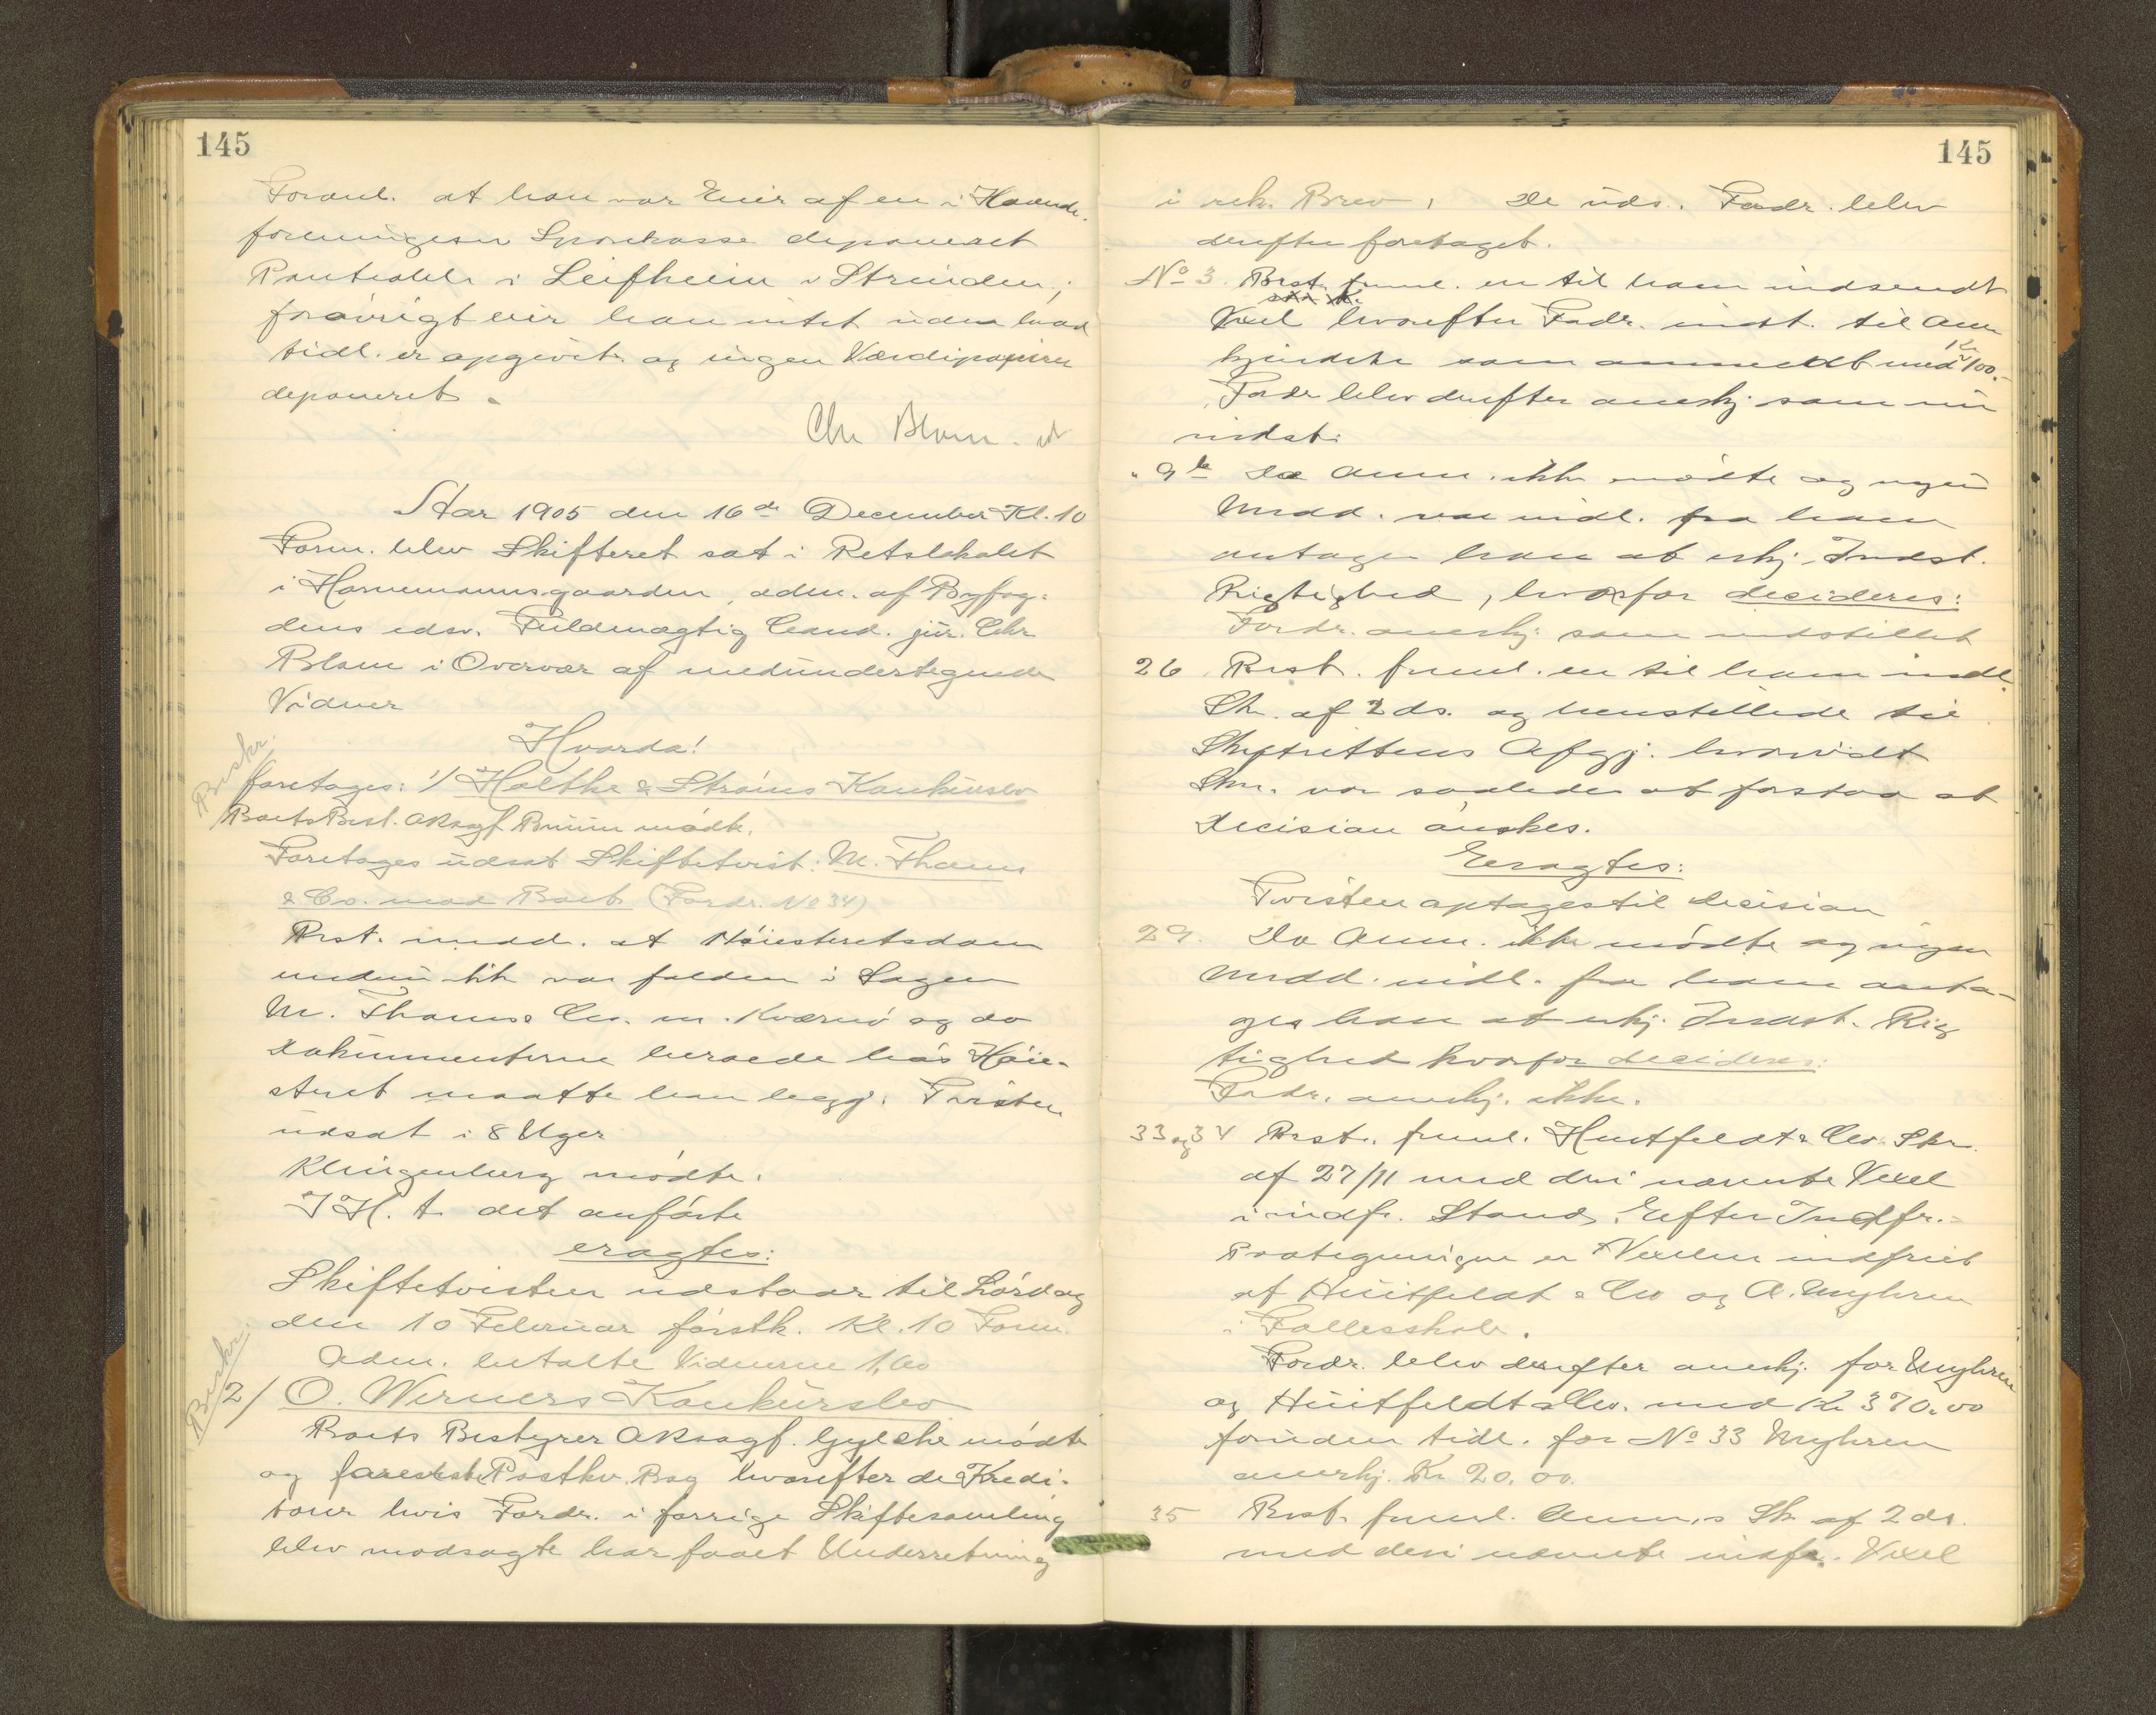 145
Foranl. at han var Eier af en i Haandv.
foreningens Sparekasse deponeret
Panteobl. i Leifheim i Strinden;
forøvrigt eier han intet uden hvad
tidl. er opgivet og ingen Værdipapirer
deponeret.
Chr Blom
Aar 1905 den 16de December Kl. 10
Form. blev Skifteret sat i Retslokalet
i Hornemannsgaarden, adm. af Byfog-
dens edsv. Fuldmægtig Cand. jur. Chr
Blom i Overvær af medundertegnede
Vidner
Hvorda!
Beskr.
foretages: 1/ Holthe & Strøms Konkursbo
Boets Best. ORsagf. Bruun mødte.
Foretages udsat Skiftetvist: M. Thams
& Co. mod Boet (Fordr. No 34)
Best. medd. at Høiesteretsdom
endnu ikke var falden i Sagen
M. Thams & Co. m. Kværnø og da
Dokumenterne beroede hos Høie-
steret maatte han begj. Tvisten
udsat i 8 Uger
Klingenberg mødte.
I H. t. det anførte
eragtes:
Skiftetvisten udstaar til Lørdag
den 10 Februar førstk. Kl. 10 Form.
Adm. betalte Vidnerne 1,60
Beskr.
2/ O. Werners Konkursbo
Boets Bestyrer ORsagf. Gylche mødte
og foreviste Postkv. Bog hvorefter de Kredi-
torer hvis Fordr. i forrige Skiftesamling
blev modsagte har faaet Underretning
145
i rek. Brev, De uds. Fordr. blev
derefter foretaget.
No 3. Best. freml. en til ham indsendt
Vexel hvorefter Fordr. indst. til aner
kjendelse som anmeldt med Kr 100.-
Fordr blev derefter anerkj som nu
indst.
" 9 Da Anm. ikke mødte og ingen
Medd. var indl. fra ham
antages han at erkj. Indst.
Rigtighed, hvorfor decideres:
Fordr. anerkj. som indstillet
26 Best. freml. en til ham indl.
Skr. af 2 ds. og henstillede til
Skifterettens Afgj. hvorvidt
Skr. var saaledes at forstaa at
Decision ønskes.
Eragtes:
Tvisten optages til decision
29. Da Anm. ikke mødte og ingen
Medd. indl. fra ham anta-
ges han at erkj. Indst. Rig
tighed hvorfor decideres:
Fordr. anerkj. ikke.
33 og 34 Best. freml. Huitfeldt & Co. Skr.
af 27/11 med den i nævnte Vexel
i indfr. Stand. Efter Indfr.-
Paategningen er Vexelen indfriet
af Huitfeldt & Co og A. Myhren
i Fællesskab.
Fordr. blev derefter anerkj. for Myhren
og Huitfeldt & Co. med Kr 370.00
foruden tidl. for No 33 Myhren
anerkj. Kr 20.00.
35 Best. freml. Anm.s Skr. af 2 ds.
med den i nævnte indfr. Vexel